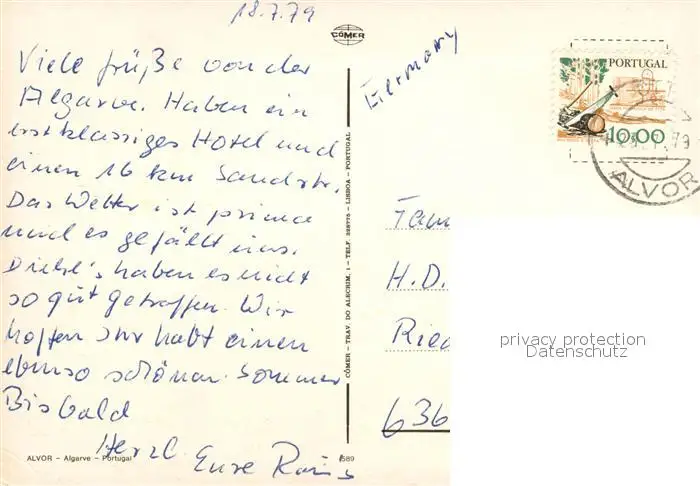 18.7.79
CÓMER
Viele Grüße von der
Algarve. Haben ein
erstklassiges Hotel und
einen 16 km Sandstr.
Das Wetter ist prima
und es gefällt uns.
haben es nicht
so gut getroffen. Wir
hoffen Ihr habt einen
ebenso schönen Sommer
Bis bald
Herzl. Eure
ALVOR - Algarve - Portugal
1589
CÓMER - TRAV. DO ALECRIM, 1 - TELF. 328775 - LISBOA - PORTUGAL
Germany
PORTUGAL
10.00
79
ALVOR
Fam
H.D.
Ried
636
privacy protection
Datenschutz